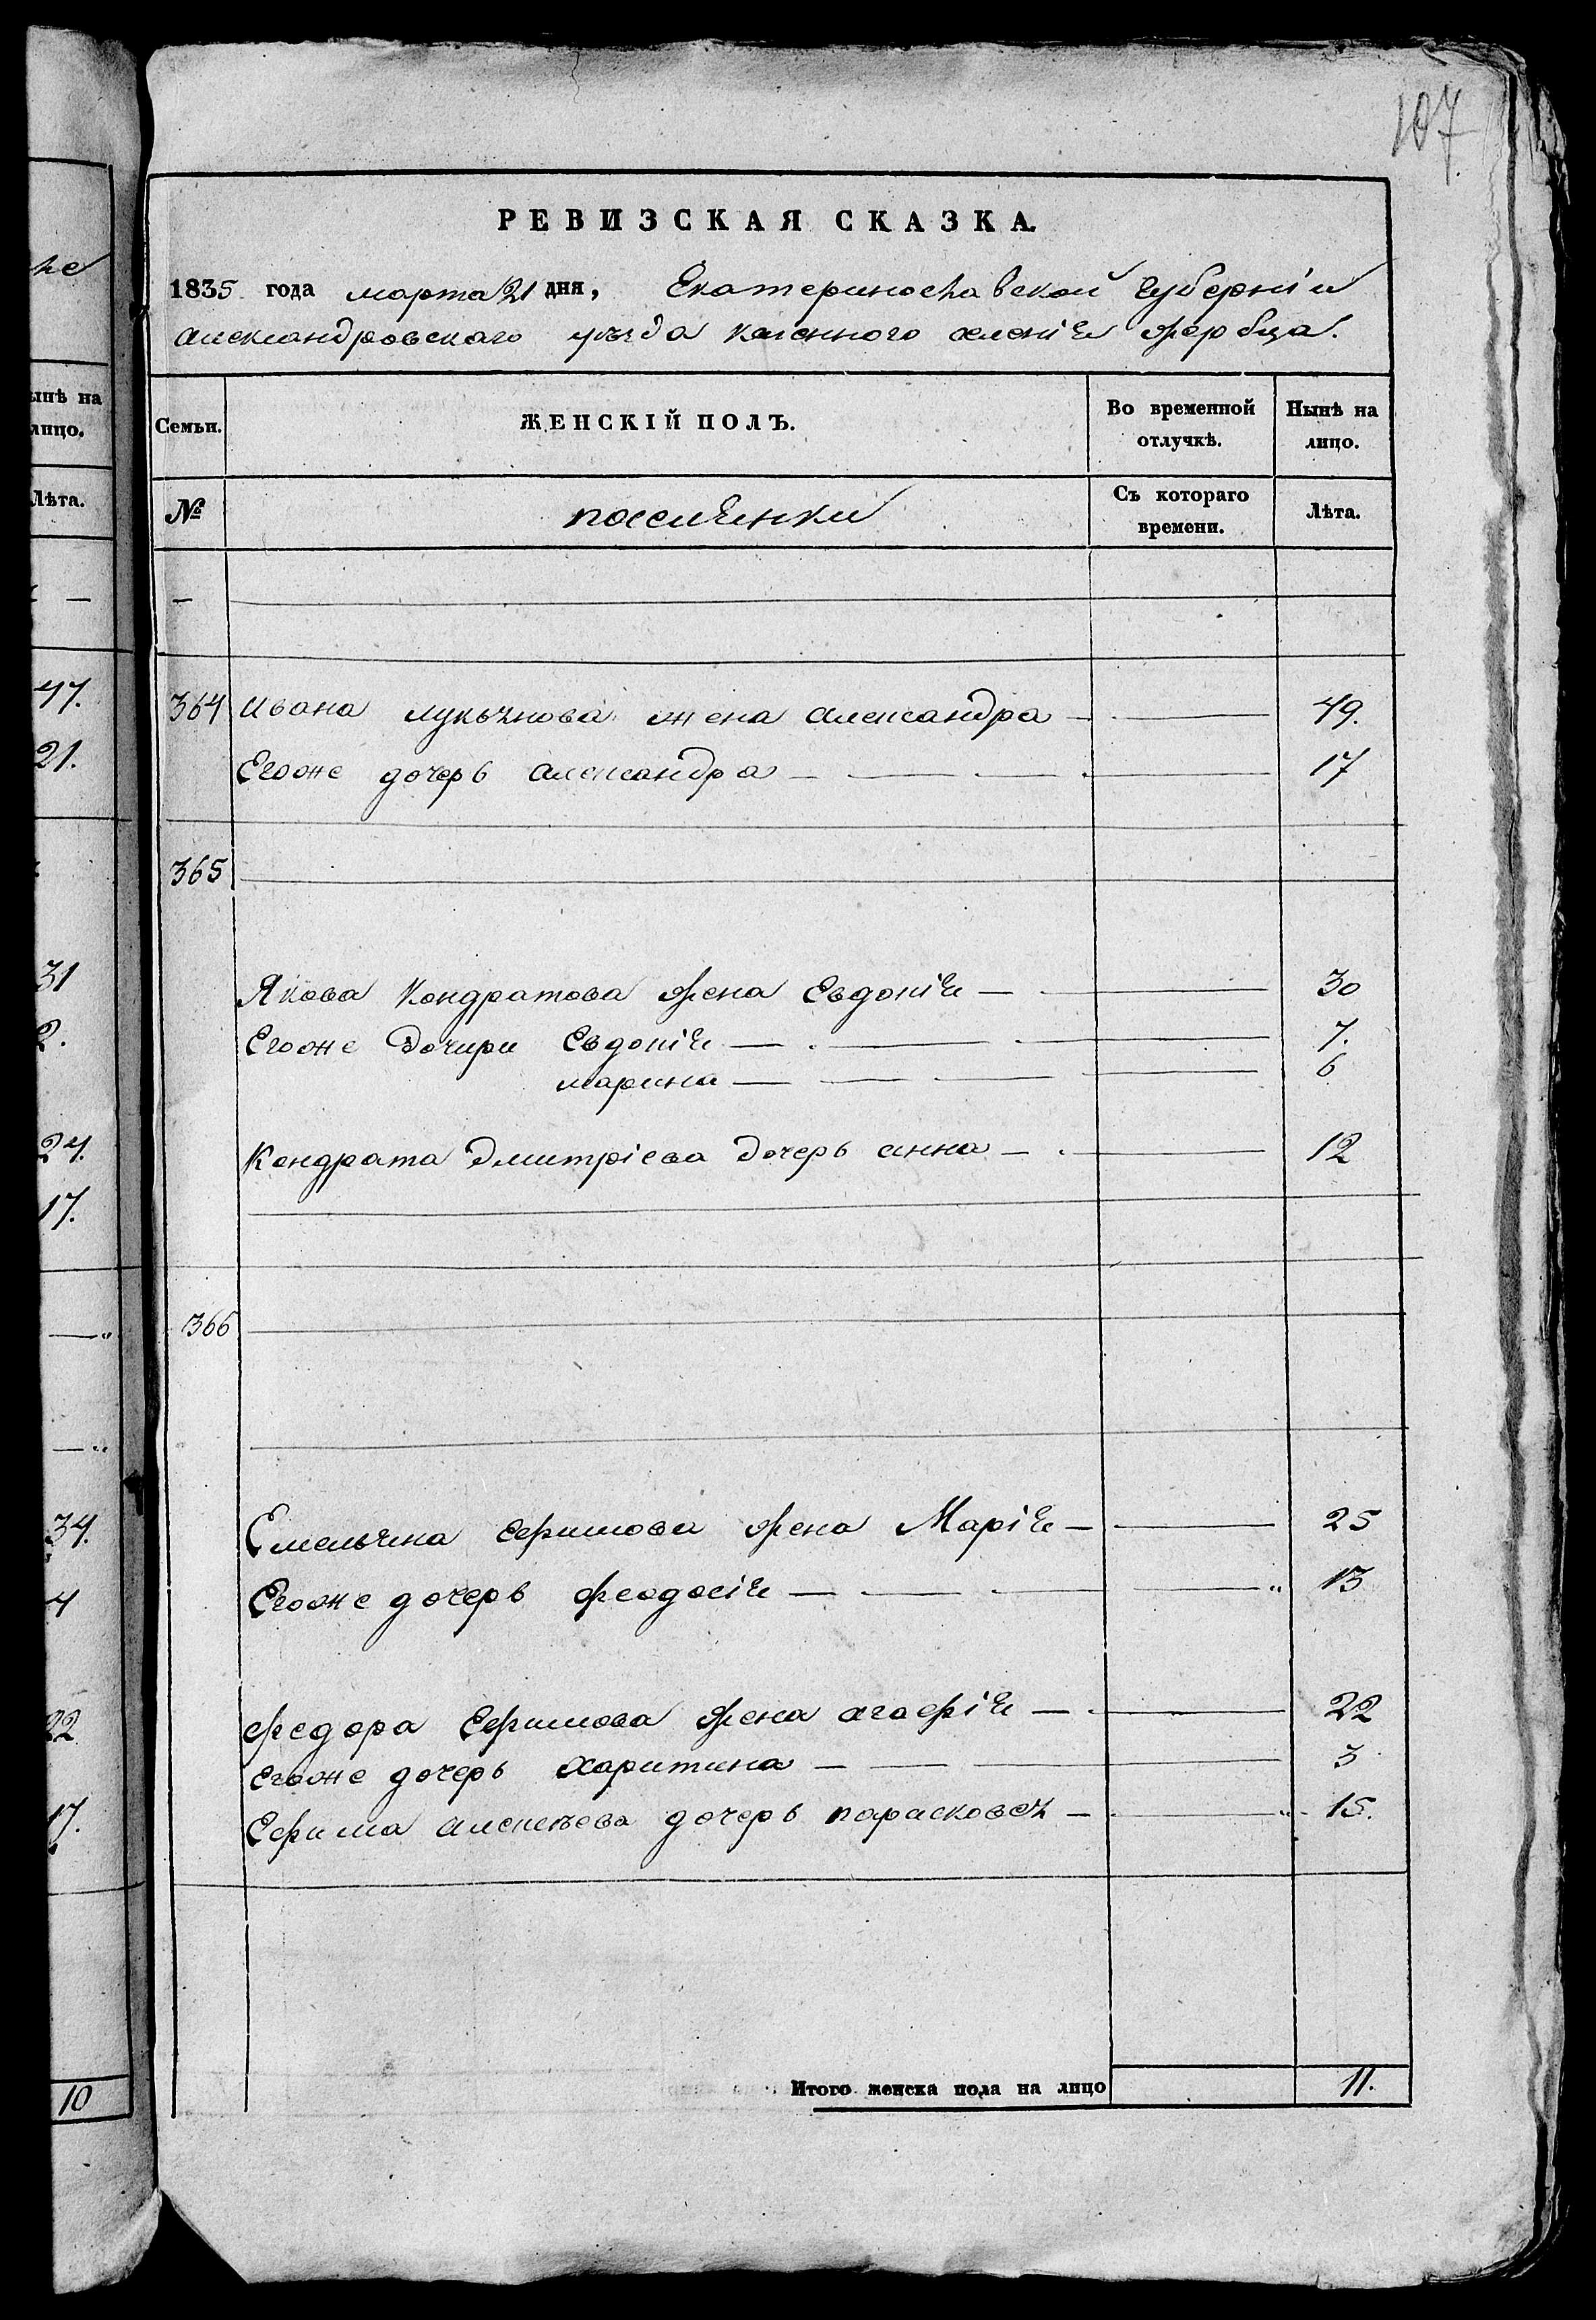 107
РЕВИЗСКАЯ СКАЗКА.
1835 года марта 21 дня, Екатеринославской губерніи
александровскаго уѣзда казенного селенія Жеребца.
ынѣ на
лицо.
Лѣта.
47.
21.
31
2.
24.
17.
34.
4
22
17.
10
Семьи.
ЖЕНСКІЙ ПОЛЪ.
Во временной
отлучкѣ.
Нынѣ на
лицо.
№
поселянки
Съ котораго
времени.
Лѣта.
364 Ивана лукьянова жена александра 49.
Егоже дочерь александра 17
365
Якова Кондратова жена Евдокія 30
Егоже дочири Евдокія 7.
марина 6
Кондрата Дмитріева дочерь анна 12
366
Емельяна ефимова жена Марія 25
Егоже дочерь феодосія 13
федора ефимова жена агафія 22
Егоже дочерь харитина 3
Ефима алексѣева дочерь парасковея 15.
Итого женска пола на лицо 11.